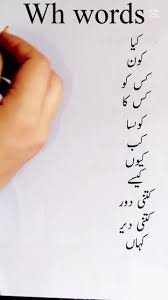 Wh words
کیا
کون
کس کو
کس کا
کونسا
کب
کیوں
کیسے
کتنی دور
کتنی دیر
کہاں